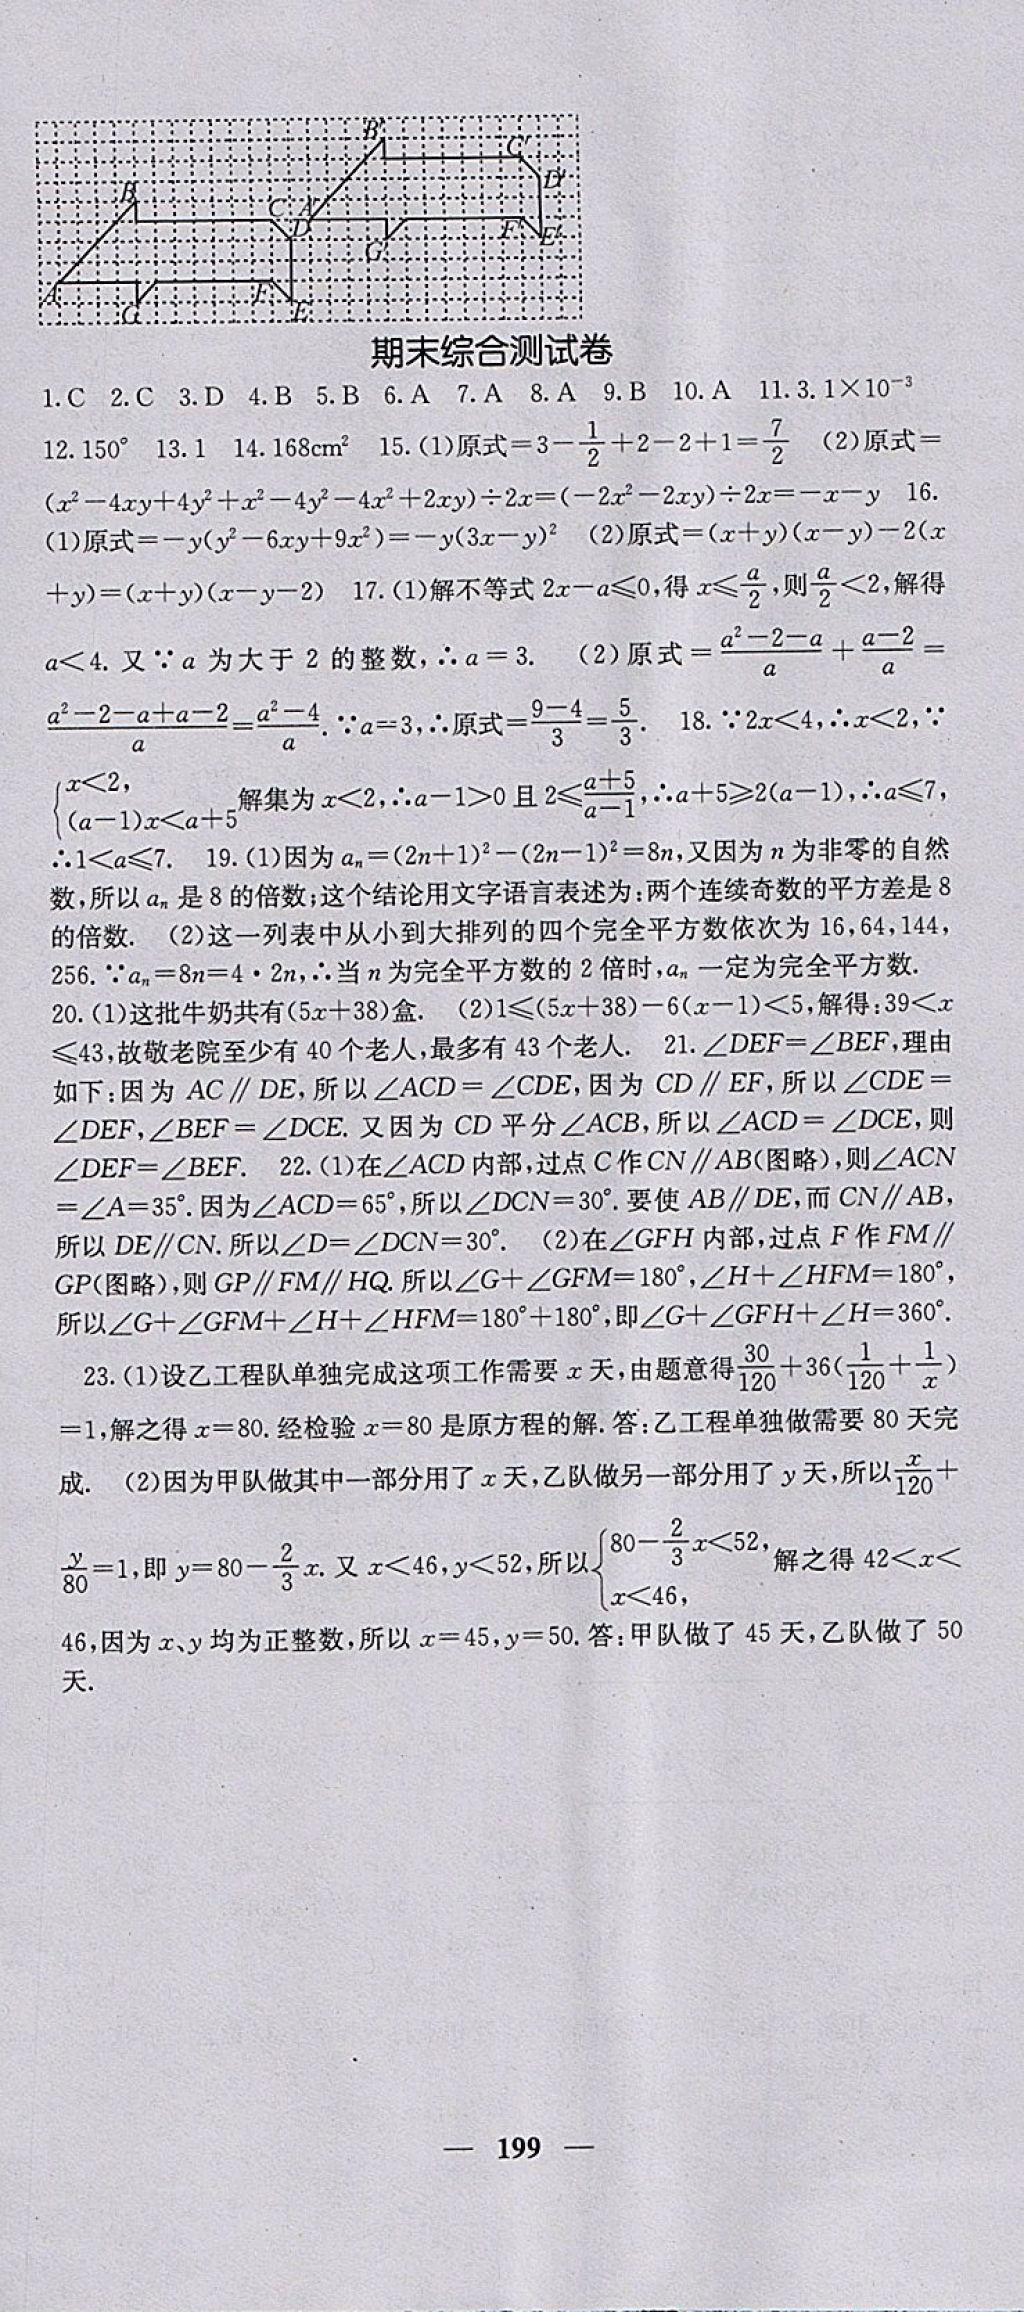 B′
C′
D′
B
C
A′
D
G′
F′
E′
A
G
F
E
期末综合测试卷
1.C 2.C 3.D 4.B 5.B 6.A 7.A 8.A 9.B 10.A 11.3.1×10⁻³
12.150° 13.1 14.168cm² 15.(1)原式=3-1/2+2-2+1=7/2 (2)原式=
(x²-4xy+4y²+x²-4y²-4x²+2xy)÷2x=(-2x²-2xy)÷2x=-x-y 16.
(1)原式=-y(y²-6xy+9x²)=-y(3x-y)² (2)原式=(x+y)(x-y)-2(x
+y)=(x+y)(x-y-2) 17.(1)解不等式 2x-a≤0,得 x≤a/2,则a/2<2,解得
a<4. 又∵a 为大于 2 的整数,∴a=3. (2)原式=(a²-2-a)/a+(a-2)/a=
(a²-2-a+a-2)/a=(a²-4)/a.∵a=3,∴原式=(9-4)/3=5/3. 18.∵2x<4,∴x<2,∵
{x<2,
(a-1)x<a+5 解集为 x<2,∴a-1>0 且 2≤(a+5)/(a-1),∴a+5≥2(a-1),∴a≤7,
∴1<a≤7. 19.(1)因为 aₙ=(2n+1)²-(2n-1)²=8n,又因为 n 为非零的自然
数,所以 aₙ 是 8 的倍数;这个结论用文字语言表述为:两个连续奇数的平方差是 8
的倍数. (2)这一列表中从小到大排列的四个完全平方数依次为 16,64,144,
256.∵aₙ=8n=4·2n,∴当 n 为完全平方数的 2 倍时,aₙ 一定为完全平方数.
20.(1)这批牛奶共有(5x+38)盒. (2)1≤(5x+38)-6(x-1)<5,解得:39<x
≤43,故敬老院至少有 40 个老人,最多有 43 个老人. 21.∠DEF=∠BEF,理由
如下:因为 AC∥DE,所以∠ACD=∠CDE,因为 CD∥EF,所以∠CDE=
∠DEF,∠BEF=∠DCE. 又因为 CD 平分∠ACB,所以∠ACD=∠DCE,则
∠DEF=∠BEF. 22.(1)在∠ACD 内部,过点 C 作 CN∥AB(图略),则∠ACN
=∠A=35°.因为∠ACD=65°,所以∠DCN=30°.要使 AB∥DE,而 CN∥AB,
所以 DE∥CN.所以∠D=∠DCN=30°. (2)在∠GFH 内部,过点 F 作 FM∥
GP(图略),则 GP∥FM∥HQ.所以∠G+∠GFM=180°,∠H+∠HFM=180°,
所以∠G+∠GFM+∠H+∠HFM=180°+180°,即∠G+∠GFH+∠H=360°.
23.(1)设乙工程队单独完成这项工作需要 x 天,由题意得30/120+36(1/120+1/x)
=1,解之得 x=80.经检验 x=80 是原方程的解.答:乙工程单独做需要 80 天完
成. (2)因为甲队做其中一部分用了 x 天,乙队做另一部分用了 y 天,所以x/120+
y/80=1,即 y=80-2/3x.又 x<46,y<52,所以{80-2/3x<52,
x<46, 解之得 42<x<
46,因为 x、y 均为正整数,所以 x=45,y=50.答:甲队做了 45 天,乙队做了 50
天.
— 199 —